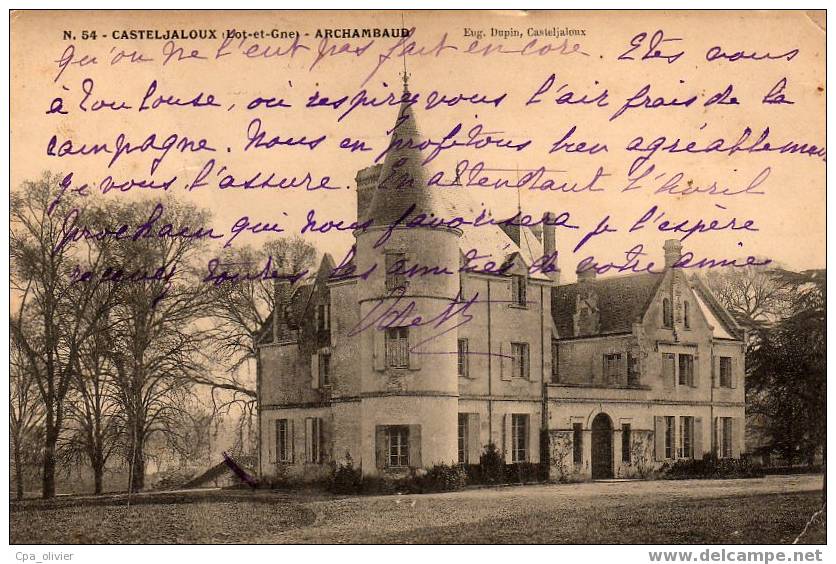 N. 54 - CASTELJALOUX (Lot-et-Gne) - ARCHAMBAUD
Eug. Dupin, Casteljaloux
qu'on ne l'eut pas fait encore. Etes vous
à Toulouse, où respirez vous l'air frais de la
campagne. Nous en profitons bien agréablement
je vous l'assure. En attendant l'avril
prochain qui nous favorisera je l'espère
recevez toutes les amitiés de votre amie
Cpa_olivier
http://www.delcampe.com